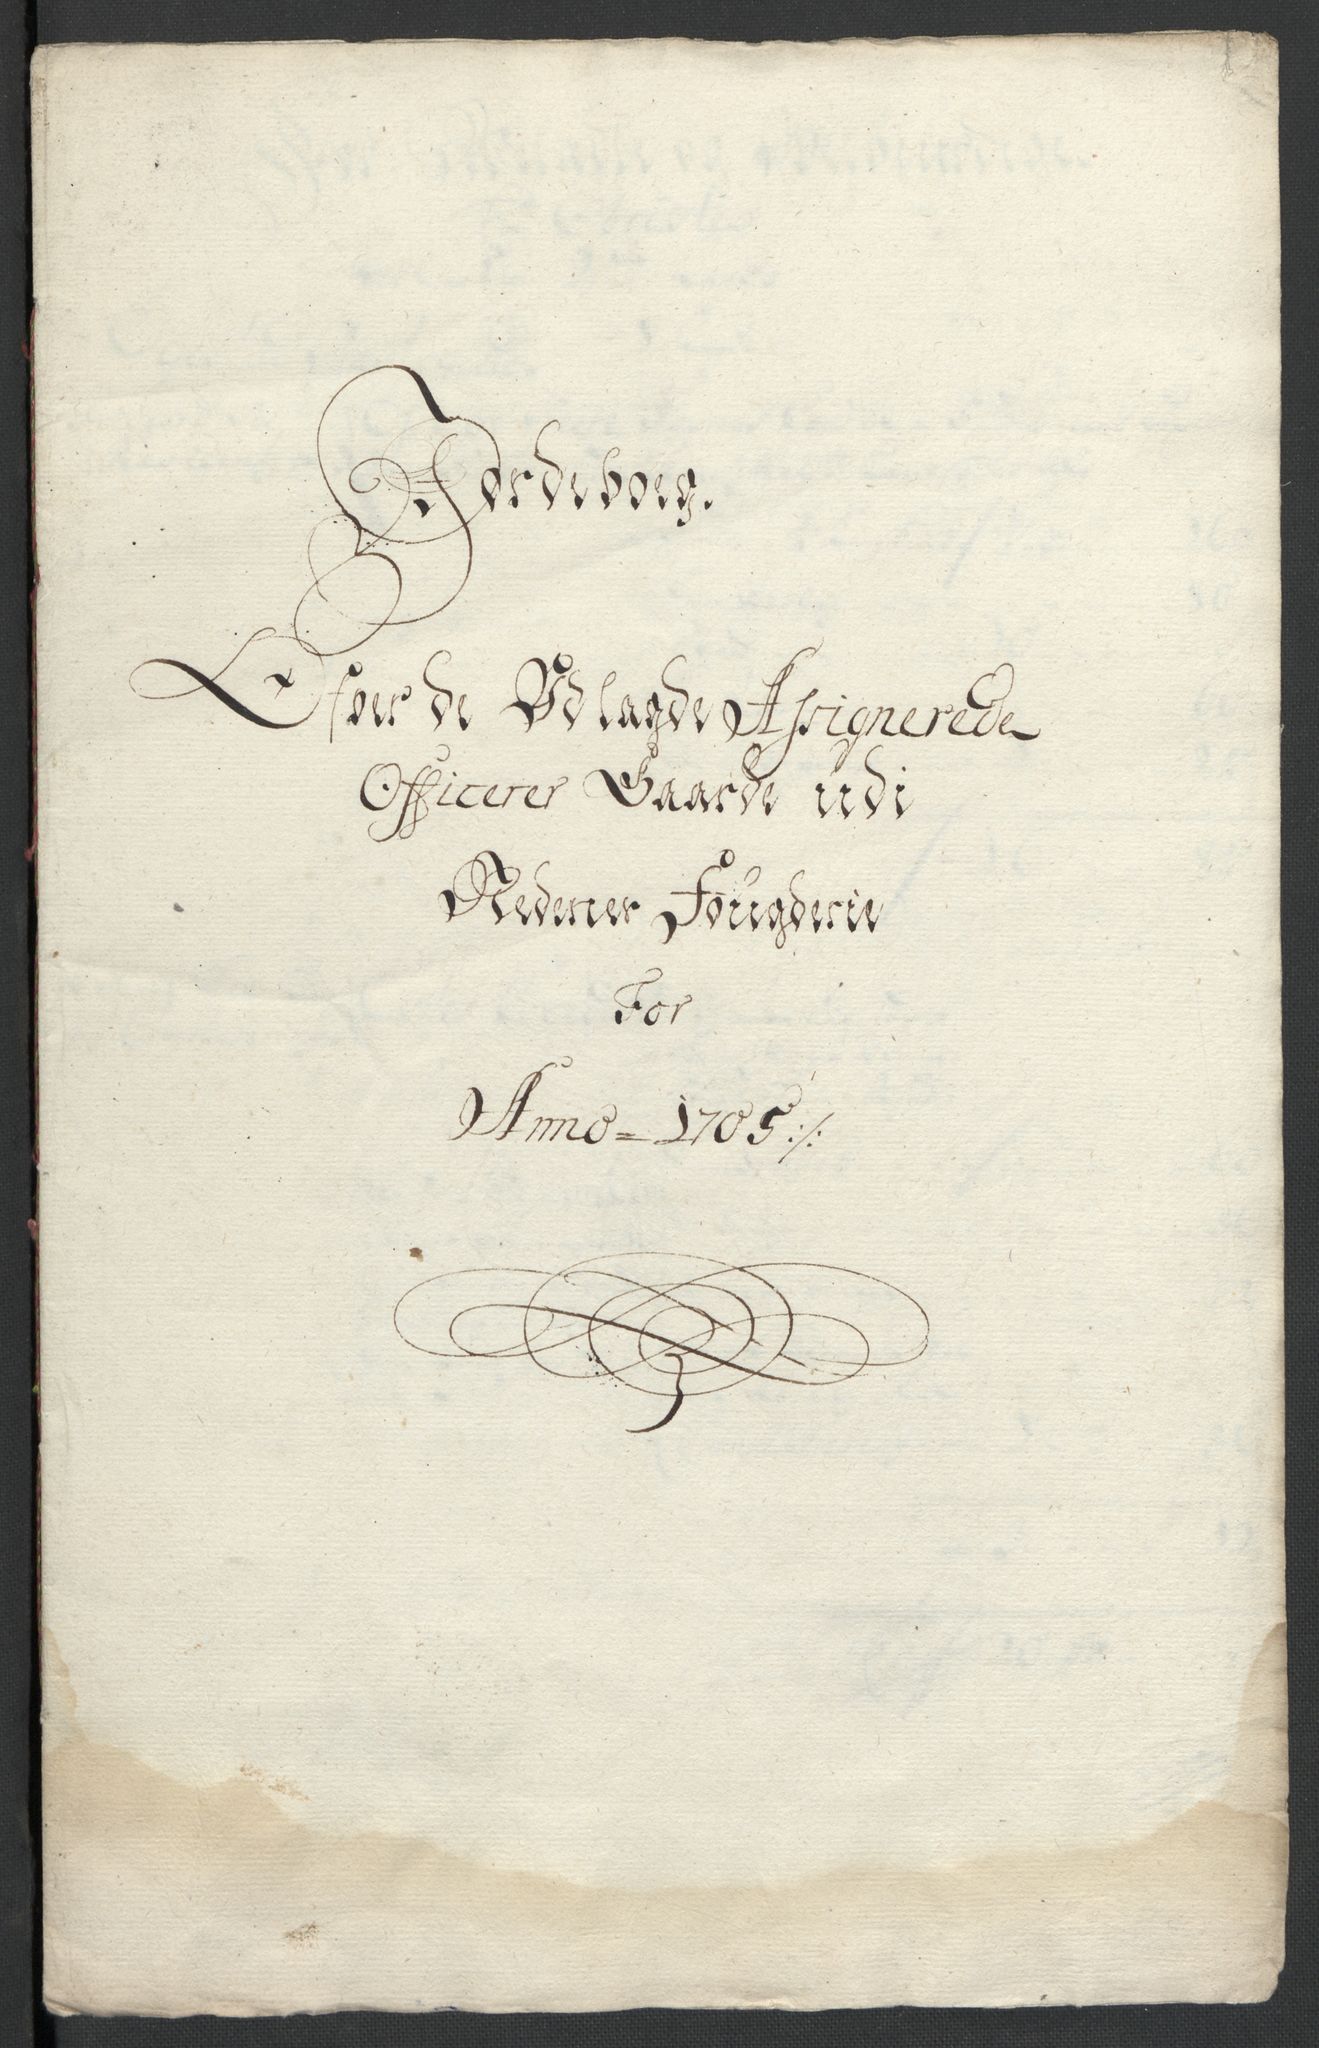 Jordeboeg.
Ofver de Udlagde Assignerede
Officerer Gaarde udi
Nedener Fougderie
For
Anno = 1705 ./.